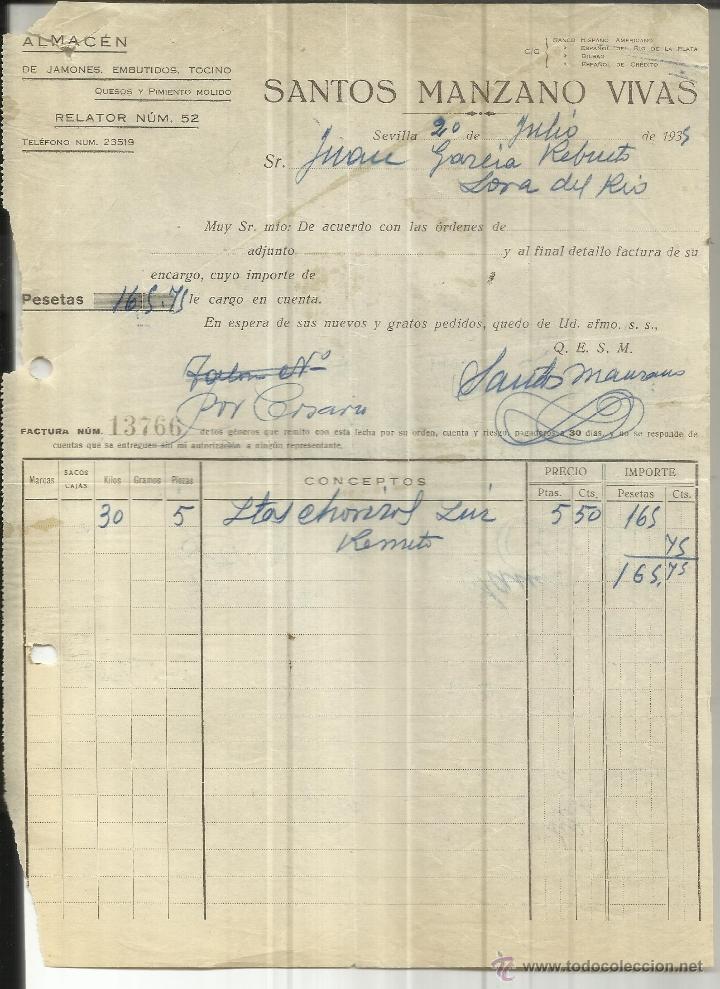 ALMACÉN
DE JAMONES, EMBUTIDOS, TOCINO
QUESOS Y PIMIENTO MOLIDO
RELATOR NÚM. 52
TELÉFONO NUM. 23519
C/C
BANCO HISPANO AMERICANO
» ESPAÑOL DEL RIO DE LA PLATA
» BILBAO
» ESPAÑOL DE CRÉDITO
SANTOS MANZANO VIVAS
Sevilla 20 de Julio de 1935
Sr. Juan Garcia
Lora del Rio
Muy Sr. mío: De acuerdo con las órdenes de
adjunto y al final detallo factura de su
encargo, cuyo importe de
Pesetas 165,75 le cargo en cuenta.
En espera de sus nuevos y gratos pedidos, quedo de Ud. afmo. s. s.,
Q. E. S. M.
Santos Manzano
por Cosario
FACTURA NÚM. 13766 de los géneros que remito con esta fecha por su orden, cuenta y riesgo, pagaderos a 30 días, y no se responde de
cuentas que se entreguen sin mi autorización a ningún representante.
Marcas SACOS CAJAS Kilos Gramos Piezas CONCEPTOS PRECIO Ptas. Cts. IMPORTE Pesetas Cts.
30 5 Ltas chorizos 5 50 165
75
165,75
www.todocoleccion.net